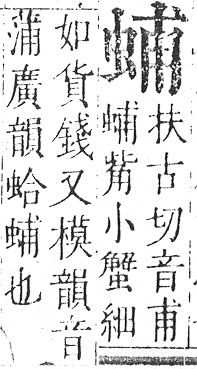 蜅
扶古切音甫
蜅觜小蟹細
如貨錢又模韻音
蒲廣韻蛤蜅也